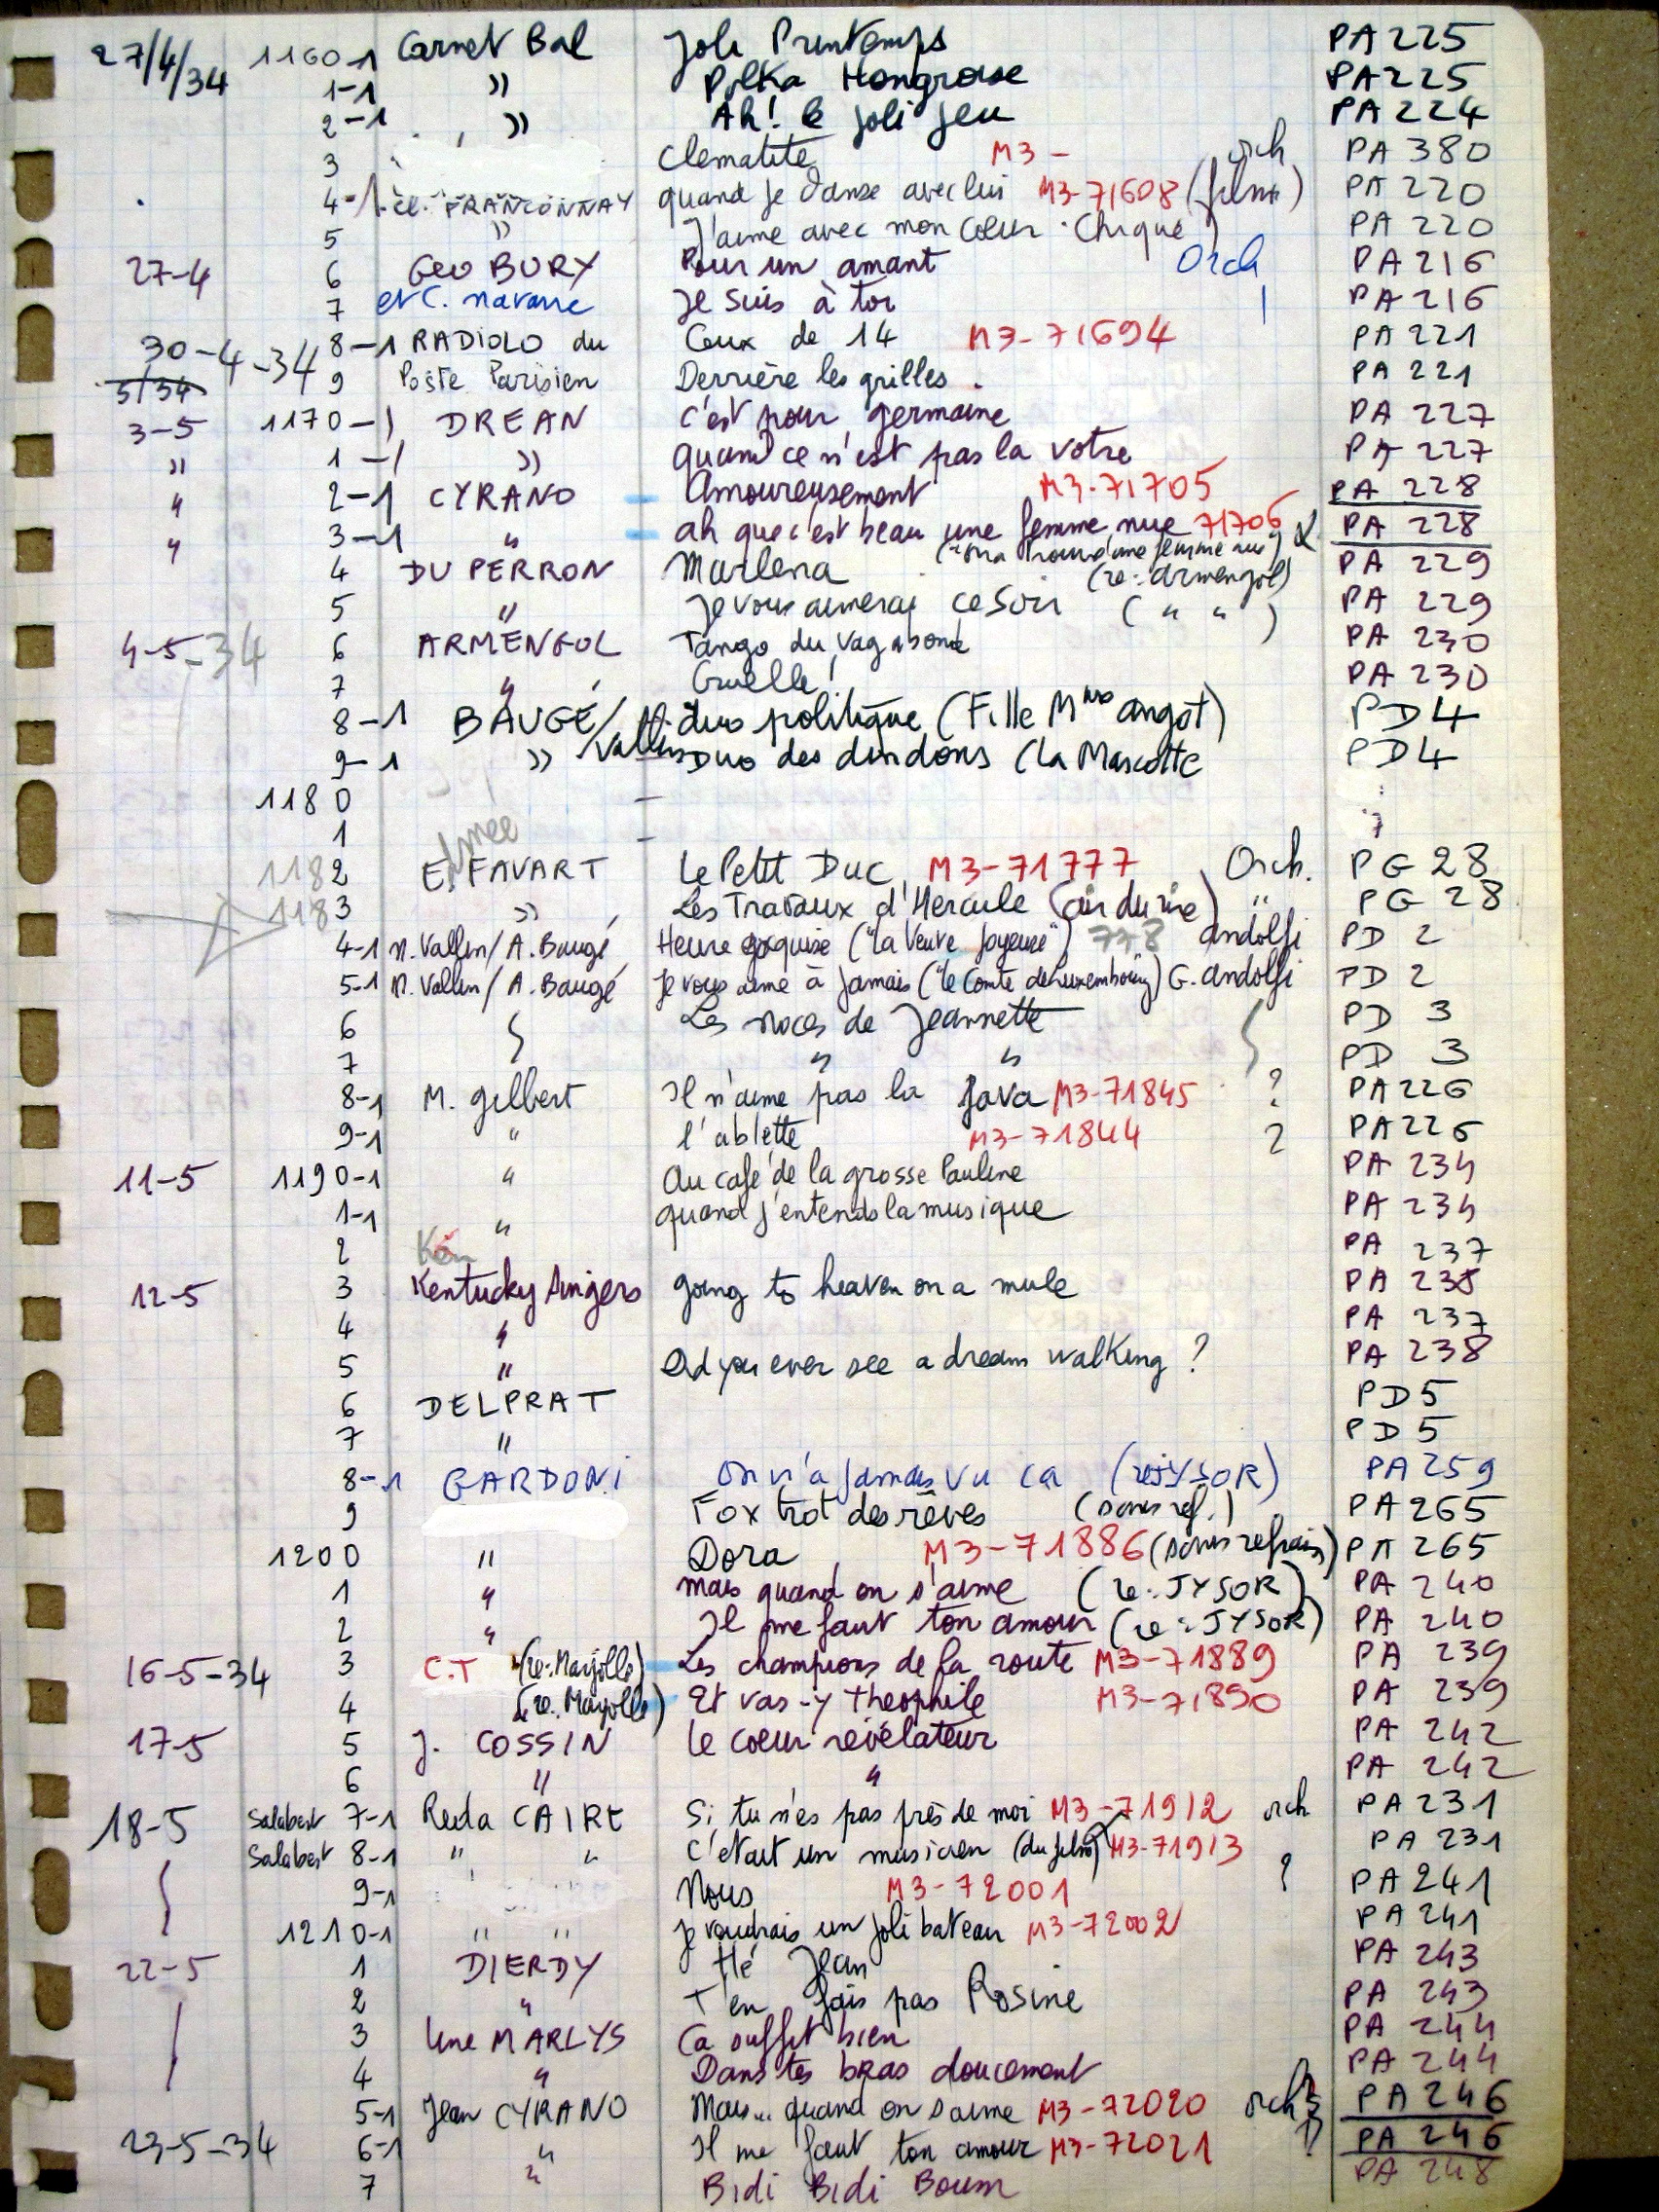 27/4/34 1160-1 Carnet Bal Joli Printemps PA 225
1-1 " Polka Hongroise PA 225
2-1 " Ah! le joli jeu PA 224
3 Clematite M3- orch PA 380
4-1 cl. FRANCONNAY quand je danse avec lui M3-71608 (films) PA 220
5 " J'aime avec mon coeur Chiqué PA 220
27-4 6 Geo BURY Pour un amant Orch PA 216
7 et C. navarre Je suis à toi PA 216
30-4-34 8-1 RADIOLO du Ceux de 14 M3-71694 PA 221
5/34 9 Poste Parisien Derrière les grilles. PA 221
3-5 1170-1 DREAN c'est pour germaine PA 227
" 1-1 " quand ce n'est pas la votre PA 227
" 2-1 CYRANO Amoureusement M3-71705 PA 228
" 3-1 " ah que c'est beau une femme nue 71706 PA 228
4 DU PERRON Marlena (re: Armengol) PA 229
5 " Je vous aimerai ce soir ( " " ) PA 229
4-5-34 6 ARMENGOL Tango du vagabond PA 230
7 " Cruelle! PA 230
8-1 BAUGÉ/ duo politique (Fille Mme angot) PD4
9-1 " Vallin Duo des dindons (la Mascotte PD4
1180 -
1 -
1182 Edmée E. FAVART Le Petit Duc M3-71777 Orch. PG 28
1183 " Les Travaux d'Hercule (air du rire) " PG 28
4-1 N. Vallin/ A. Baugé Heure exquise ("la Veuve Joyeuse") 778 andolfi PD 2
5-1 N. Vallin/ A. Baugé Je vous aime à jamais ("le Comte de Luxembourg") G. andolfi PD 2
6 Les noces de Jeannette PD 3
7 " " PD 3
8-1 M. gilbert Il n'aime pas la java M3-71845 ? PA 226
9-1 " l'ablette M3-71844 ? PA 226
11-5 1190-1 " Au café de la grosse Pauline PA 234
1-1 " quand j'entends la musique PA 234
2 Ken PA 237
12-5 3 Kentucky Singers going to heaven on a mule PA 238
4 " PA 237
5 " Did you ever see a dream walking? PA 238
6 DELPRAT PD5
7 " PD 5
8-1 GARDONI On n'a jamais vu ca (re JYSOR) PA 259
9 Fox trot des rêves (sans ref.) PA 265
1200 " Dora M3-71886 (sans refrain) PA 265
1 " mais quand on s'aime (re: JYSOR) PA 240
2 " Il me faut ton amour (re: JYSOR) PA 240
16-5-34 3 C.T (re: Marjolle) Les champions de la route M3-71889 PA 239
4 (re. Marjolle) Et vas-y theophile M3-71890 PA 239
17-5 5 J. COSSIN le coeur révélateur PA 242
6 " " PA 242
18-5 Salabert 7-1 Reda CAIRE Si tu n'es pas près de moi M3-71912 orch PA 231
Salabert 8-1 " " C'etait un musicien (du film) M3-71913 PA 231
9-1 Nous M3-72001 ? PA 241
1210-1 " " je voudrais un joli bateau M3-72002 PA 241
22-5 1 DIERDY Hé Jean PA 243
2 " T'en fais pas Rosine PA 243
3 Line MARLYS Ca suffit bien PA 244
4 " Dans tes bras doucement PA 244
5-1 Jean CYRANO Mais... quand on s'aime M3-72020 orch? PA 246
23-5-34 6-1 " Il me faut ton amour M3-72021 PA 246
7 " Bidi Bidi Boum PA 248